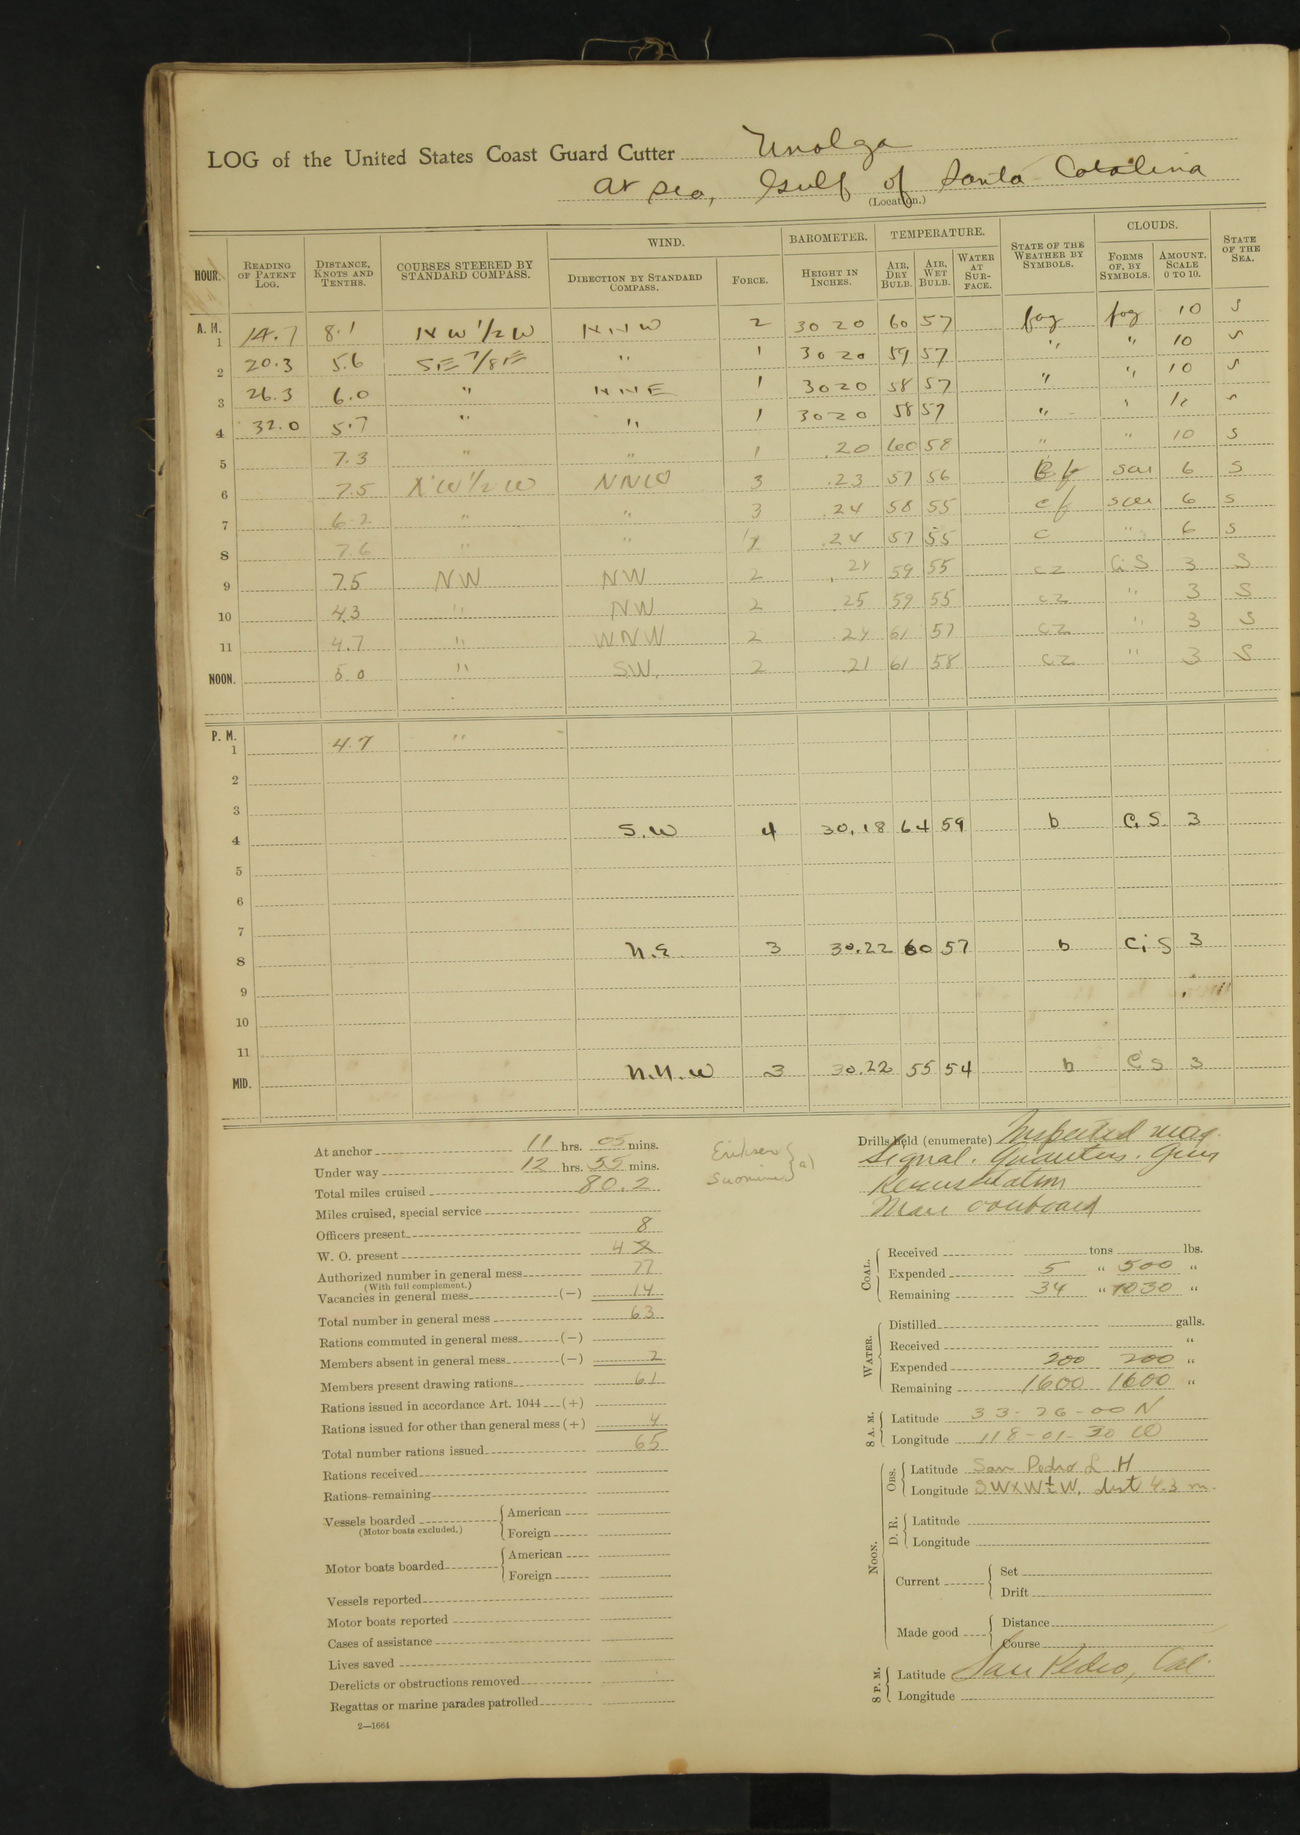 LOG of the United States Coast Guard Cutter Unalga
At sea, Gulf of Santa Catalina
(Location.)
HOUR. READING OF PATENT LOG. DISTANCE, KNOTS AND TENTHS. COURSES STEERED BY STANDARD COMPASS. WIND. DIRECTION BY STANDARD COMPASS. FORCE. BAROMETER. HEIGHT IN INCHES. TEMPERATURE. AIR, DRY BULB. AIR, WET BULB. WATER AT SURFACE. STATE OF THE WEATHER BY SYMBOLS. CLOUDS. FORMS OF, BY SYMBOLS. AMOUNT, SCALE 0 TO 10. STATE OF THE SEA.
A. M.
1 14.7 8.1 NW 1/2 W NNW 2 30 20 60 57 fog fog 10 S
2 20.3 5.6 SE 7/8 E " 1 30 20 59 57 " " 10 S
3 26.3 6.0 " NNE 1 30 20 58 57 " " 10 S
4 32.0 5.7 " " 1 30 20 58 57 " " S
5 7.3 " " 1 .20 60 58 " " 10 S
6 7.5 NW 1/2 W NNW 3 .23 57 56 f scu 6 S
7 6.2 " " 3 .24 58 55 c f scu 6 S
8 7.6 " " .24 57 55 c " 6 S
9 7.5 NW NW 2 .24 59 55 cz Ci S 3 S
10 4.3 " NW 2 .25 59 55 cz " 3 S
11 4.7 " WNW 2 .24 61 57 cz " 3 S
NOON. 5.0 " SW. 2 .21 61 58 cz " 3 S
P. M.
1 4.7 "
2
3
4 S.W 4 30.18 64 59 b C.S. 3
5
6
7
8 N.E. 3 30.22 60 57 b Ci S 3
9
10
11
MID. N.N.W 3 30.22 55 54 b C S 3
At anchor 11 hrs. 05 mins.
Under way 12 hrs. 55 mins.
Total miles cruised 80.2
Miles cruised, special service
Officers present 8
W. O. present 4
Authorized number in general mess 77
(With full complement.)
Vacancies in general mess (−) 14
Total number in general mess 63
Rations commuted in general mess (−)
Members absent in general mess (−) 2
Members present drawing rations 61
Rations issued in accordance Art. 1044 (+)
Rations issued for other than general mess (+) 4
Total number rations issued 65
Rations received
Rations remaining
Vessels boarded (Motor boats excluded.) American
Foreign
Motor boats boarded American
Foreign
Vessels reported
Motor boats reported
Cases of assistance
Lives saved
Derelicts or obstructions removed
Regattas or marine parades patrolled
2—1664
Eriksen
Suominen } a)
Drills held (enumerate) Inspected mag.
Signal. Quarters. Guns
Resuscitation
Man overboard
COAL. Received tons lbs.
Expended 5 " 500 "
Remaining 34 " 1030 "
WATER. Distilled galls.
Received "
Expended 200 200 "
Remaining 1600 1600 "
8 A. M. Latitude 33-26-00 N
Longitude 118-01-30 W
NOON. OBS. Latitude San Pedro L.H
Longitude SWxW½W, dist 4.3 m.
D. R. Latitude
Longitude
Current Set
Drift
Made good Distance
Course
8 P. M. Latitude San Pedro, Cal.
Longitude